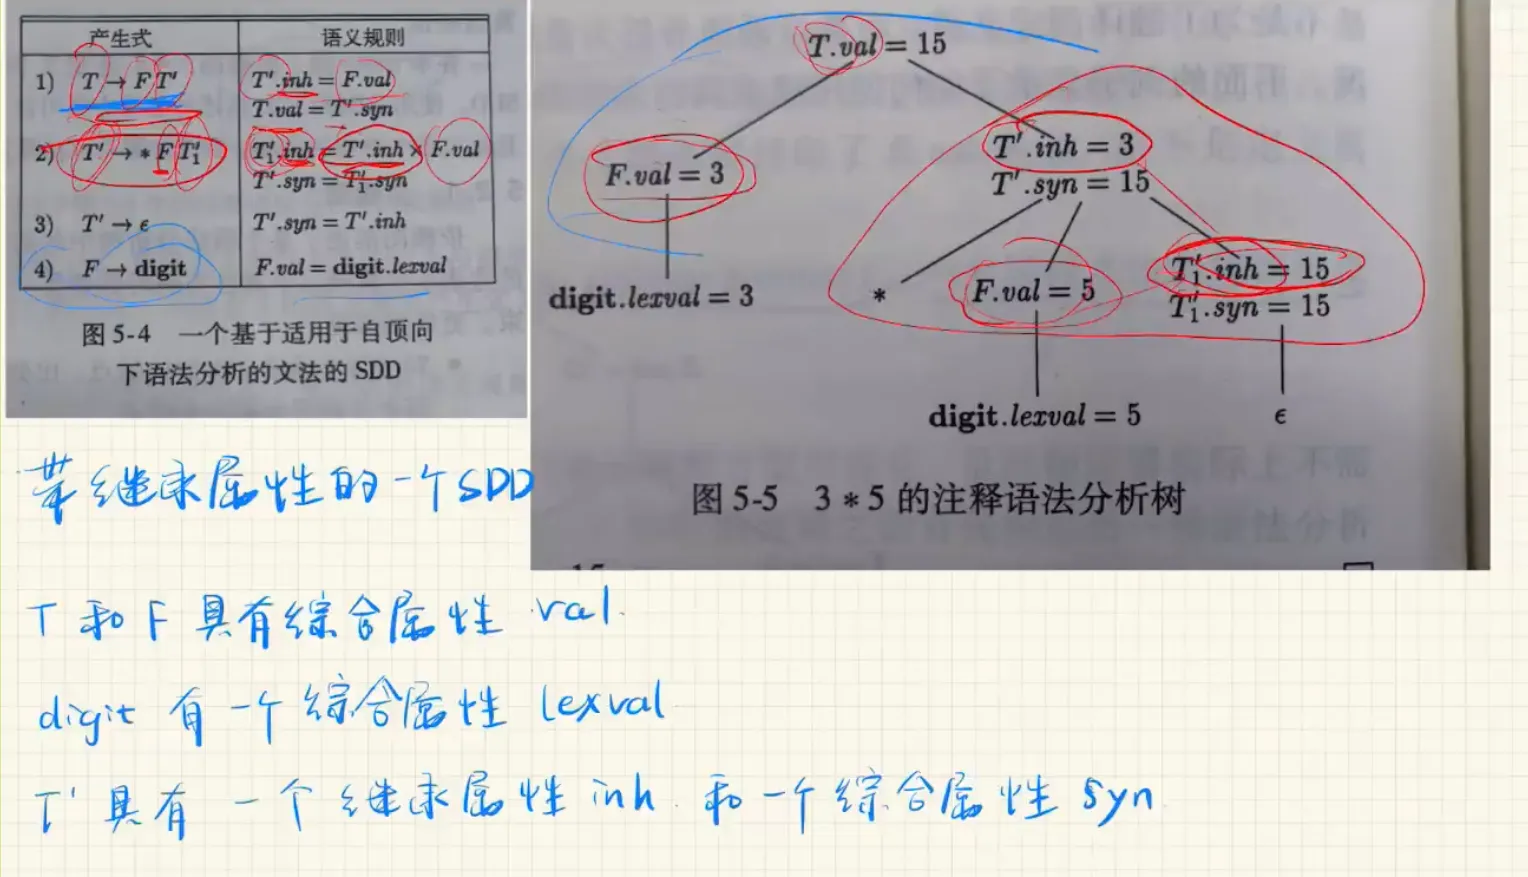 产生式 语义规则
1) T → F T' T'.inh = F.val
T.val = T'.syn
2) T' → * F T'₁ T'₁.inh = T'.inh × F.val
T'.syn = T'₁.syn
3) T' → ϵ T'.syn = T'.inh
4) F → digit F.val = digit.lexval
图 5-4 一个基于适用于自顶向
下语法分析的文法的 SDD
T.val = 15
F.val = 3
T'.inh = 3
T'.syn = 15
digit.lexval = 3
*
F.val = 5
T'₁.inh = 15
T'₁.syn = 15
digit.lexval = 5
ϵ
图 5-5 3 * 5 的注释语法分析树
带继承属性的一个SDD
T 和 F 具有综合属性 val.
digit 有一个综合属性 lexval
T' 具有 一个继承属性 inh 和一个综合属性 syn